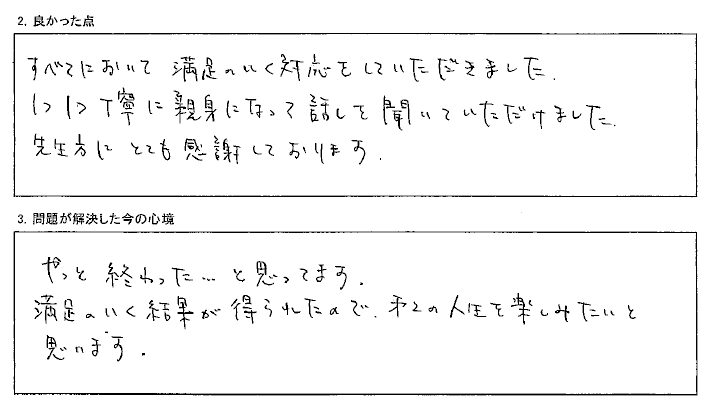 2. 良かった点
すべてにおいて 満足のいく対応をしていただきました.
いつも丁寧に親身になって話しを聞いていただけました.
先生方に とても感謝しております.
3. 問題が解決した今の心境
やっと終わった… と思ってます.
満足のいく結果が得られたので、第2の人生を楽しみたいと
思います.